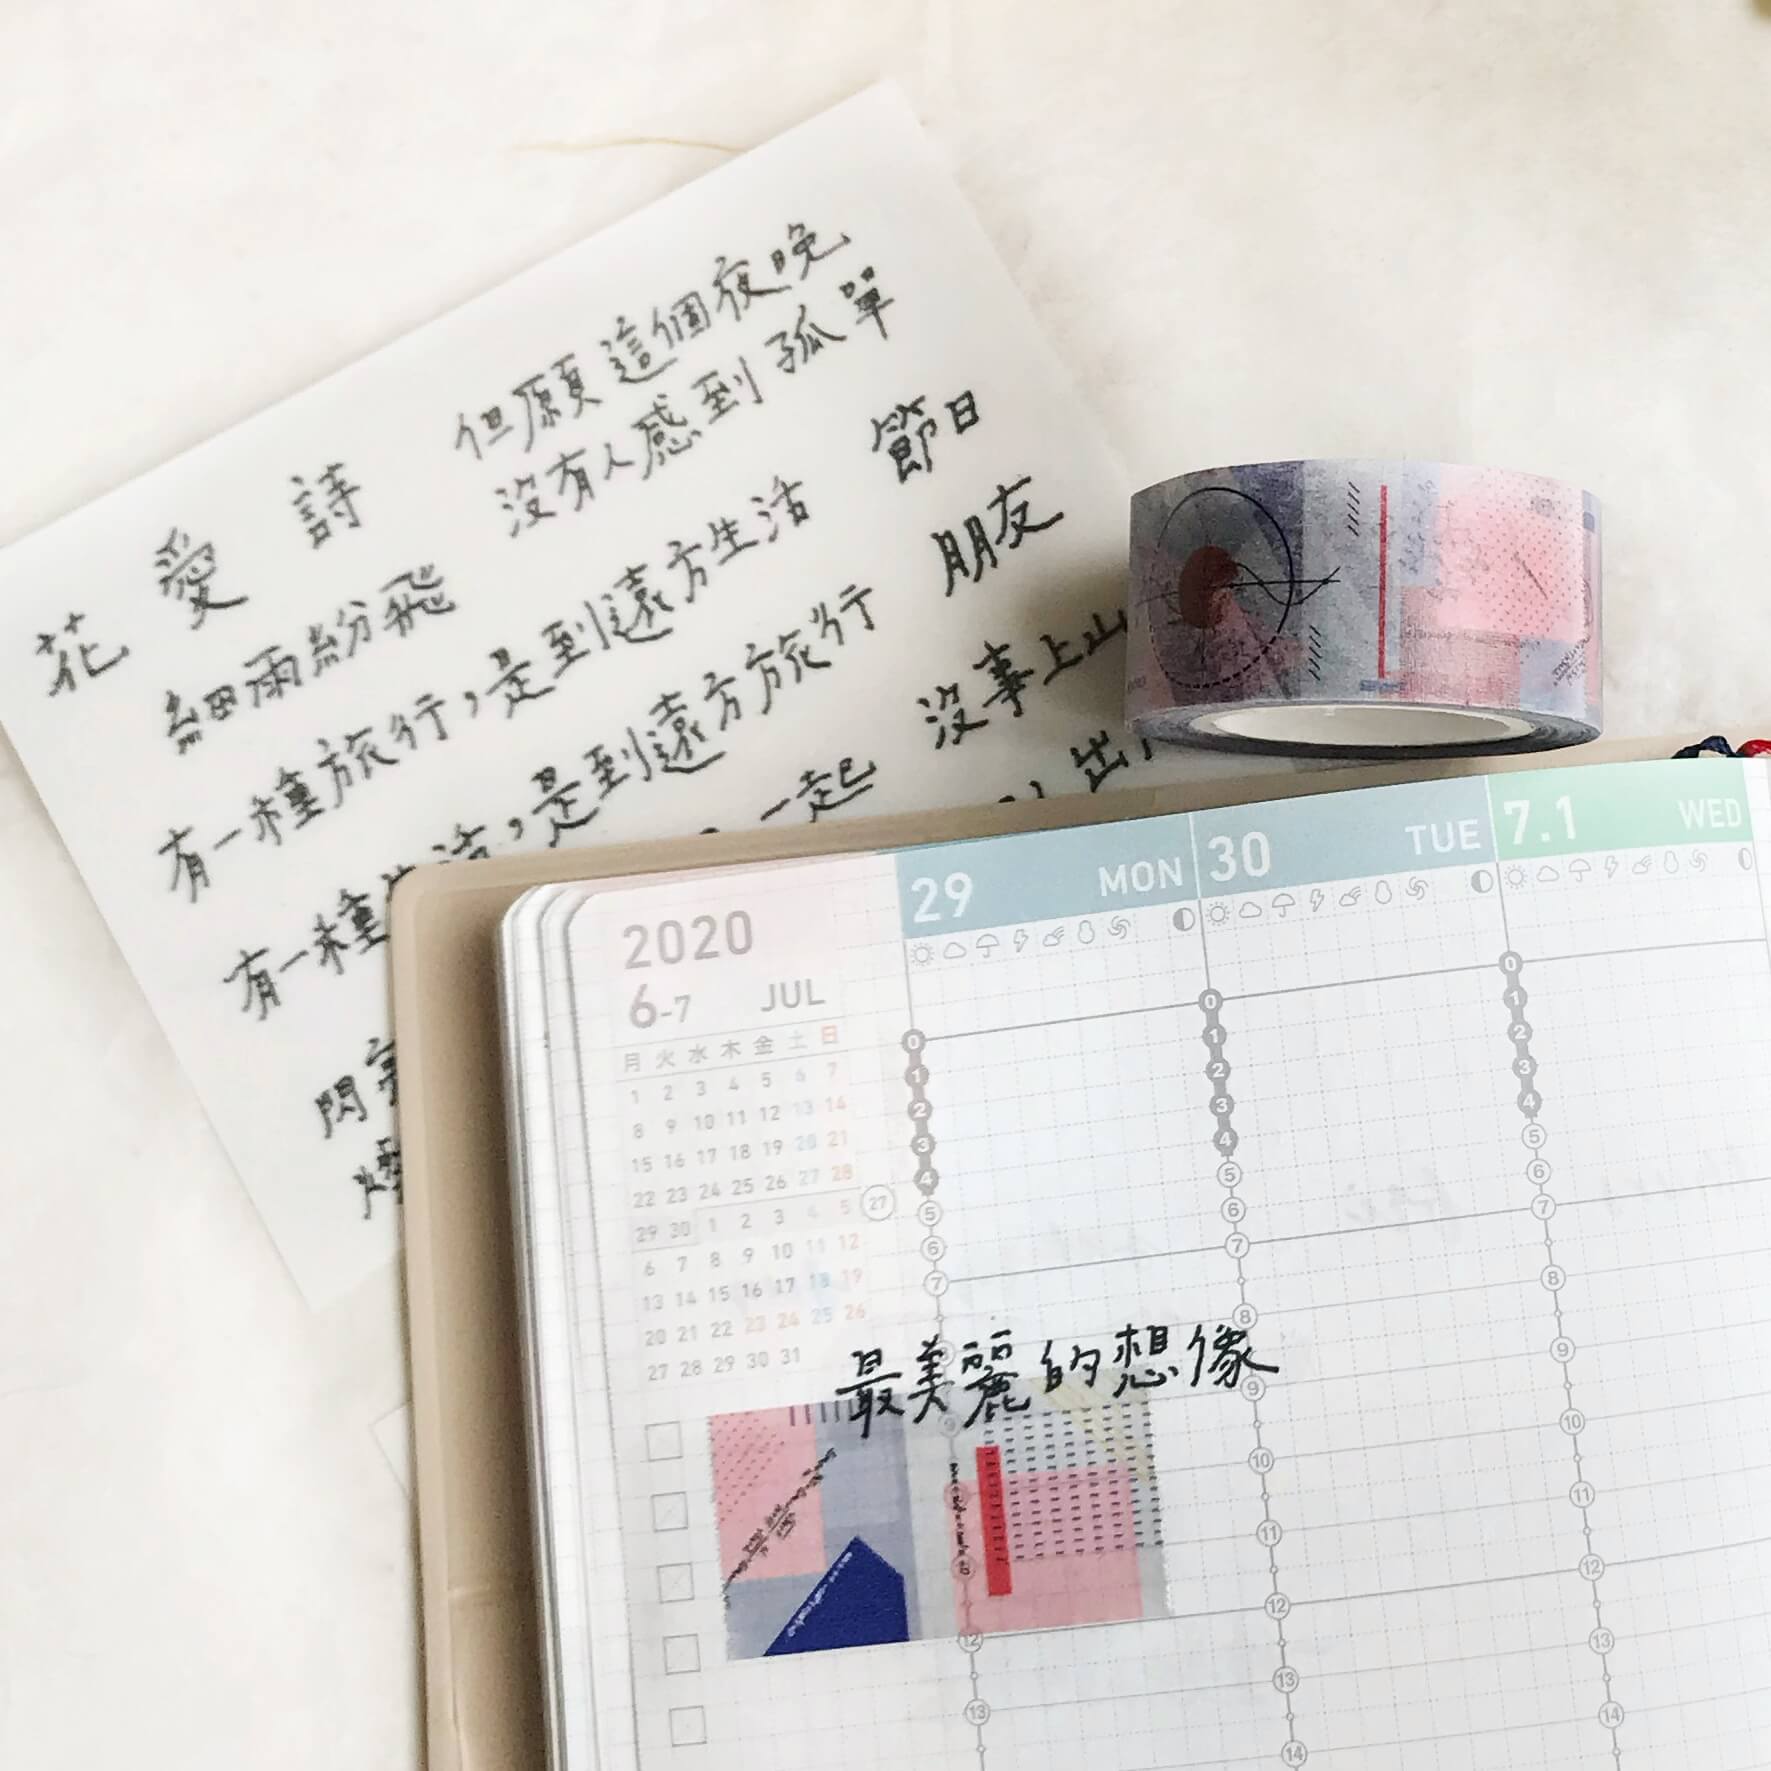 但願這個夜晚
沒有人感到孤單
花 愛 詩
節日
細雨紛飛
朋友
有一種旅行，是到遠方生活
沒事上山
有一種生活，是到遠方旅行
一起
閃
2020
6-7 JUL
月 火 水 木 金 土 日
1 2 3 4 5 6 7
8 9 10 11 12 13 14
15 16 17 18 19 20 21
22 23 24 25 26 27 28
29 30 1 2 3 4 5 27
6 7 8 9 10 11 12
13 14 15 16 17 18 19
20 21 22 23 24 25 26
27 28 29 30 31
29 MON
30 TUE
7.1 WED
0 0 0
1 1 1
2 2 2
3 3 3
4 4 4
5 5 5
6 6 6
7 7 7
8 8
9 9
10 10
11 11
12 12 12
13 13 13
14 14
最美麗的想像